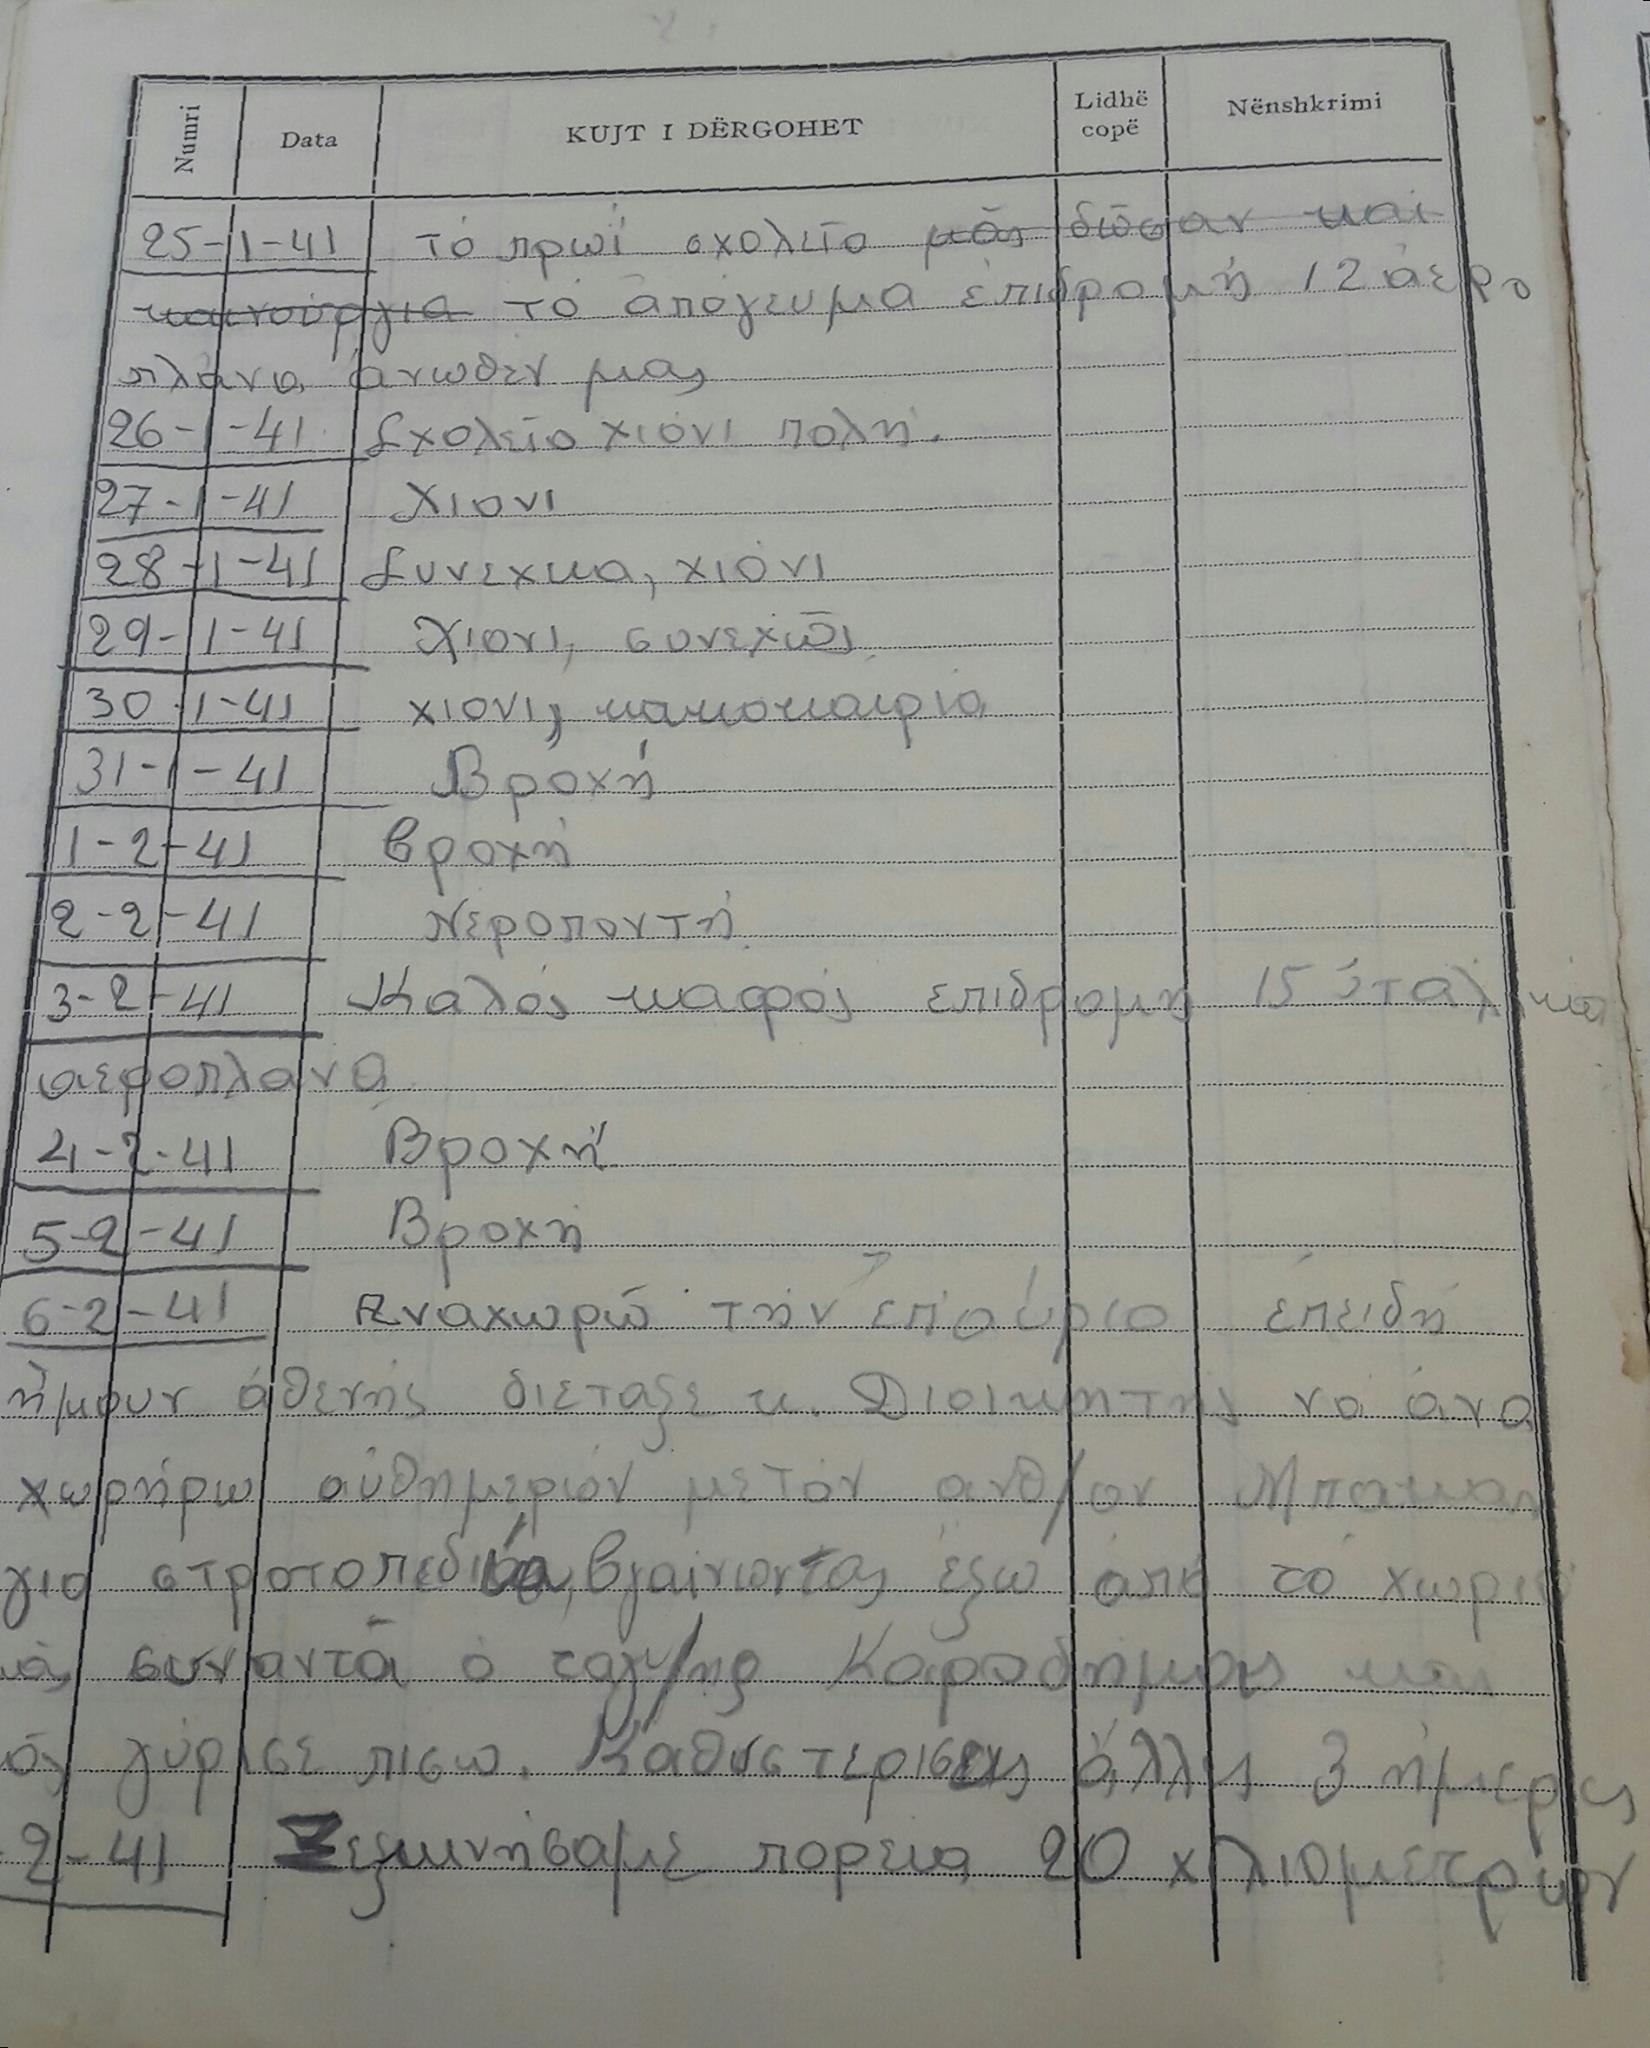 Numri Data KUJT I DËRGOHET Lidhë copë Nënshkrimi
25-1-41 τό πρωΐ σχολεῖο μᾶς δῶσαν και
καινούργια τό ἀπόγευμα ἐπιδρομή 12 ἀερο
πλάνα ἄνωθέν μας
26-1-41 Σχολεῖο χιόνι πολή.
27-1-41 Χιονι
28-1-41 Συνεχκα, χιόνι
29-1-41 Χιονι, συνεχῶς
30-1-41 χιονι, κακοκαιρία
31-1-41 Βροχή
1-2-41 βροχή
2-2-41 Νεροποντή
3-2-41 Καλός καιρός ἐπιδρομη 15 ἰταλικα
αεροπλανα
4-2-41 Βροχή
5-2-41 Βροχή
6-2-41 Αναχωρῶ τήν ἐπαύριο ἐπειδή
ἤμουν ἀθενής διεταξε κ. Διοικητής νά ἀνα
χωρήρω αὐθημερόν μετόν ανθ/ον
για στρατοπεδ βγαίνωντας ἔξω ἀπό τό χωριό
μάς συναντᾶ ὁ ταγ/ης Καραδήμος και
μάς γύρισε πισω. Καθυστερισεις ἄλλες 3 ἡμερες
2-41 Ξεκινήσαμε πορεια 20 χιλιομετρων